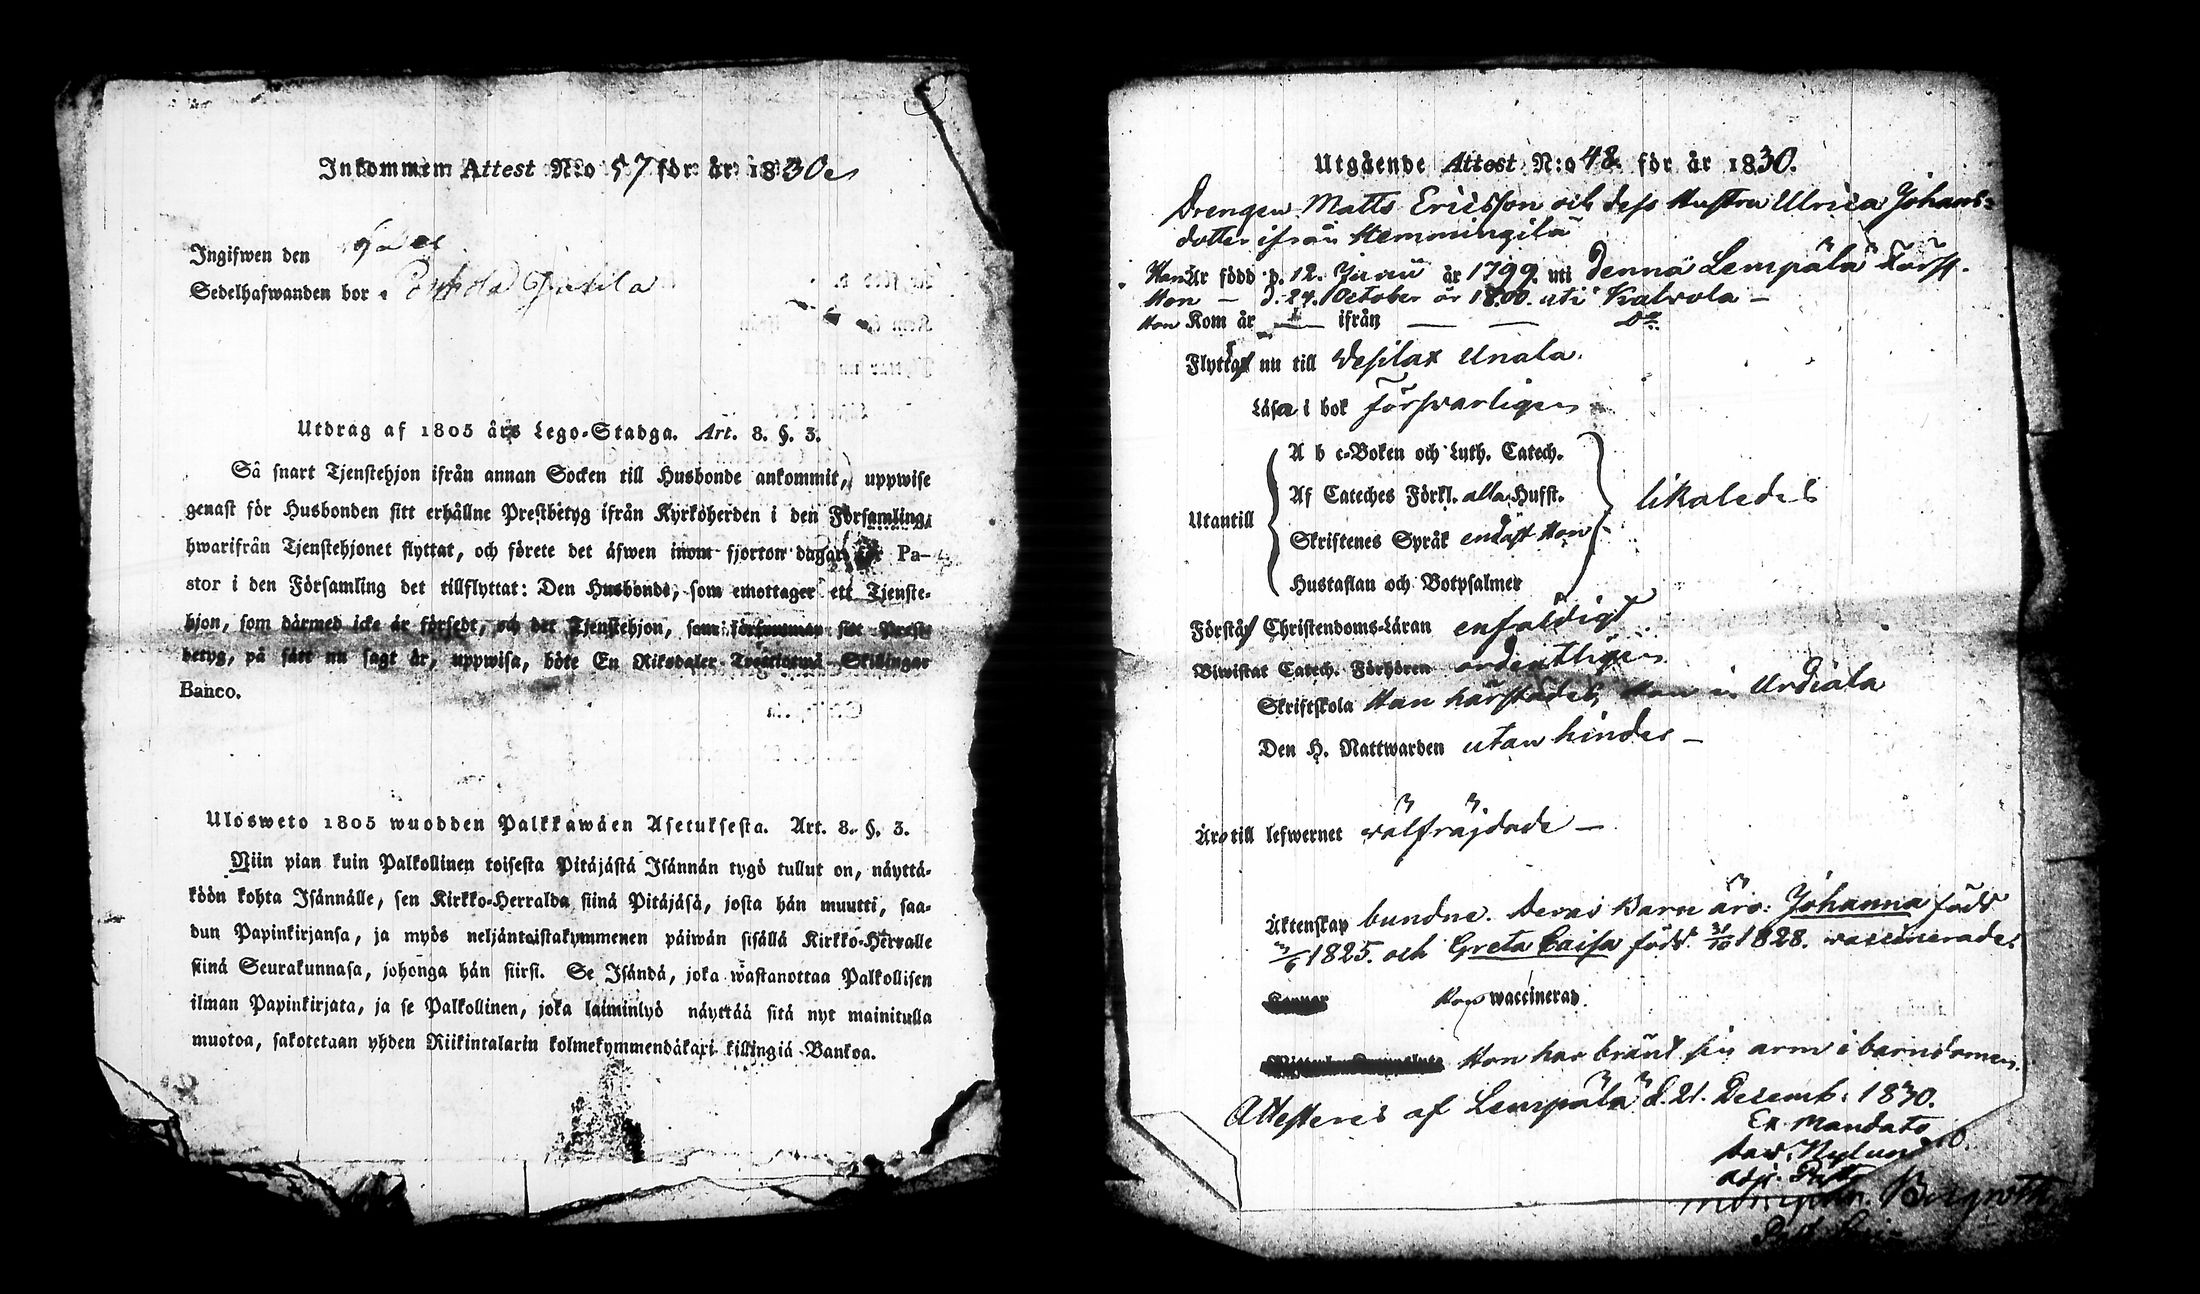 Inkommen Attest N:o 57 för år 1830
Ingifwen den
Sedelhafwanden bor i
Utdrag af 1805 års Lego-Stadga. Art. 8. §. 3.
Så snart Tjenstehjon ifrån annan Socken till Husbonde ankommit, uppwise
genast för Husbonden sitt erhållne Prestbetyg ifrån Kyrkoherden i den Församling,
hwarifrån Tjenstehjonet flyttat, och förete det äfwen inom fjorton dagar för Pa-
stor i den Församling det tillflyttat: Den Husbonde, som emottager ett Tjenste-
hjon, som därmed icke är försedt, och det Tjenstehjon, som försummar sitt Prest-
betyg, på sätt nu sagt är, uppwisa, böte En Riksdaler Trettiotwå Skillingar
Banco.
Ulosweto 1805 wuodden Palkkawäen Asetuksesta. Art. 8. §. 3.
Niin pian kuin Palkollinen toisesta Pitäjästä Isännän tygö tullut on, näyttä-
köön kohta Isännälle, sen Kirkko-Herralda siinä Pitäjäsä, josta hän muutti, saa-
dun Papinkirjansa, ja myös neljäntoistakymmenen päiwän sisällä Kirkko-Herralle
siinä Seurakunnasa, johonga hän siirsi. Se Isändä, joka wastanottaa Palkollisen
ilman Papinkirjata, ja se Palkollinen, joka laiminlyö näyttää sitä nyt mainitulla
muotoa, sakotetaan yhden Riikintalarin kolmekymmendäkaxi killingiä Bankoa.
Utgående Attest N:o 48. för år 1830.
Drengen Matts Ericsson och dess Hustru Ulrica Johans-
dotter ifrån Hemmingilä
Han Är född d. 12. Junii år 1799. uti denna Lempälä Förs.
Hon — d. 24. October år 1800. uti Kalvola —
Hon Kom år — ifrån — — Do.
Flytta nu till Vesilax Unala.
Läsa i bok försvarligen
A b c-Boken och Luth. Catech.
Af Cateches Förkl. alla Hufst.
Utantill
likaledes
Skriftenes Språk endast Hon
Hustaflan och Botpsalmer
Förstå Christendoms-Läran enfaldigt
Biwistat Catech. Förhören ordentligen
Skriftskola Han härstädes, Hon i Urdiala
Den H. Nattwarden utan hinder —
Äro till lefwernet välfräjdade —
Äktenskap bundne. Deras Barn äro: Johanna född
3/6 1825. och Greta Caisa född 31/10 1828. vaccinerade.
Hon waccinerad.
Hon har bränt sin arm i barndomen.
Attesteras af Lempälä d. 21. Decemb: 1830.
Ex Mandato
Dav. Nylund
Adj.
Bergroth